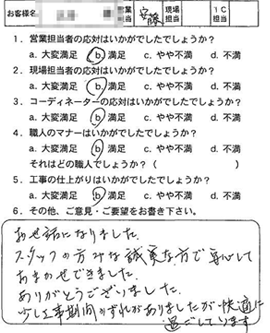 お客様名 営業担当 安藤 現場担当 IC担当
1．営業担当者の応対はいかがでしたでしょうか？
a. 大変満足 b. 満足 c. やや不満 d. 不満
2．現場担当者の応対はいかがでしたでしょうか？
a. 大変満足 b. 満足 c. やや不満 d. 不満
3．コーディネーターの応対はいかがでしたでしょうか？
a. 大変満足 b. 満足 c. やや不満 d. 不満
4．職人のマナーはいかがでしたでしょうか？
a. 大変満足 b. 満足 c. やや不満 d. 不満
それはどの職人でしょうか？（ ）
5．工事の仕上がりはいかがでしたでしょうか？
a. 大変満足 b. 満足 c. やや不満 d. 不満
6．その他、ご意見・ご要望をお書き下さい。
お世話になりました。
スタッフの方みな誠実な方で安心して
おまかせできました。
ありがとうございました。
少し工事期間のずれがありましたが快適に
過ごしています